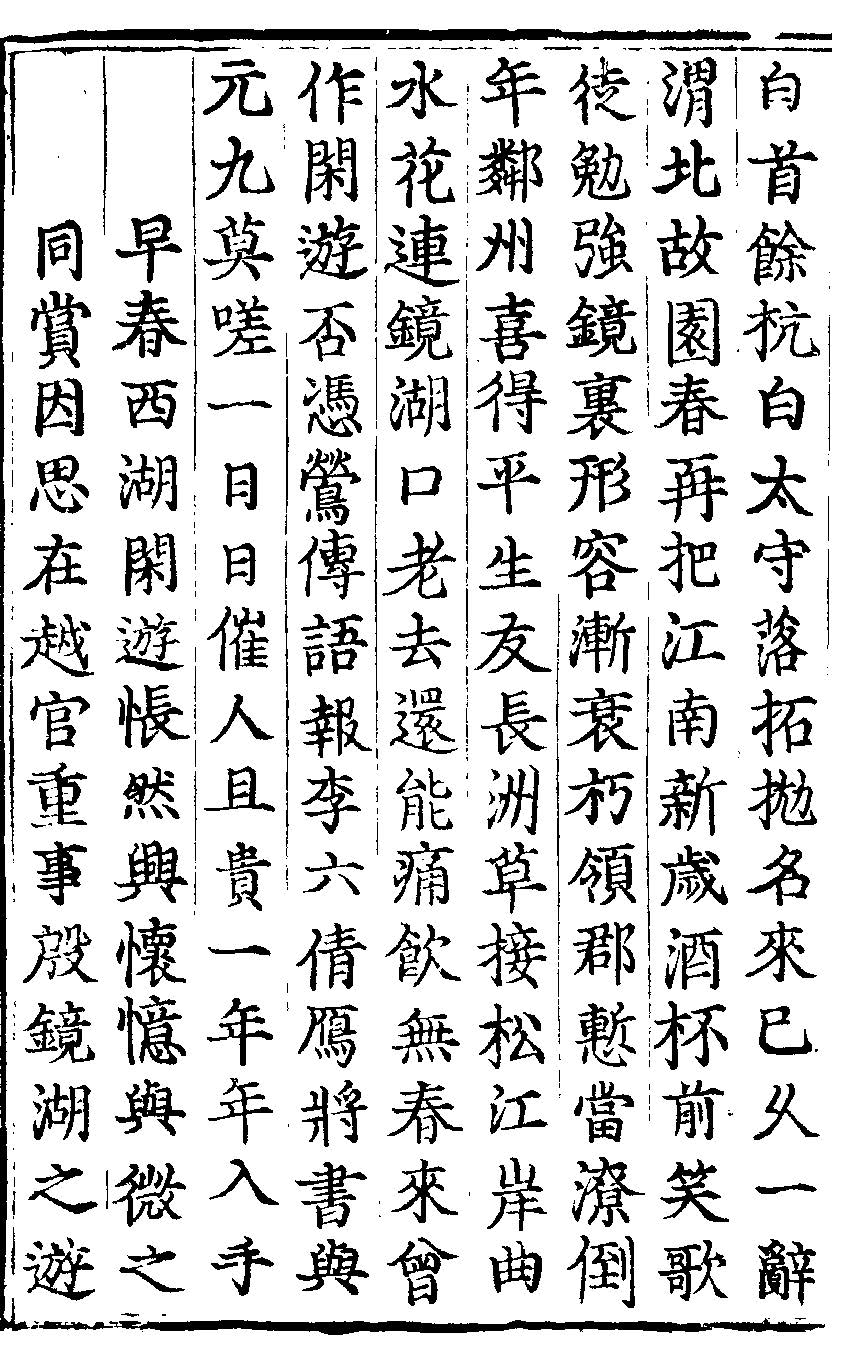 白首餘杭白太守落拓抛名來已久一辭
渭北故園春再把江南新歲酒杯前笑歌
徒勉強鏡裏形容漸衰朽領郡慙當潦倒
年鄰州喜得平生友長洲草接松江岸曲
水花連鏡湖口老去還能痛飲無春來曾
作閑遊否憑鶯傳語報李六倩鴈將書與
元九莫嗟一日日催人且貴一年年入手
早春西湖閑遊悵然興懷憶與微之
同賞因思在越官重事殷鏡湖之遊